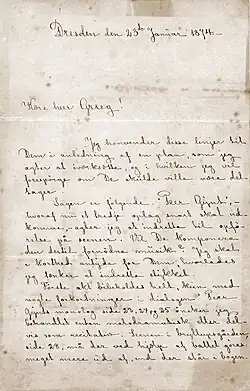 Dresden den 23de Januar 1874.
Kære herr Grieg!
Jeg henvender disse linjer til
Dem i anledning af en plan, som jeg
agter at iværksætte, og i hvilken jeg vil
forespørge om De skulde ville være del-
tager.
Sagen er følgende. "Peer Gynt",
hvoraf nu et tredje oplag snart skal ud-
komme, agter jeg at indrette til opfø-
relse på scenen. Vil De komponere
den dertil fornødne musik? Jeg skal
i korthed antyde for Dem, hvorledes
jeg tænker at indrette stykket.
Første akt bibeholdes helt, kun med
nogle forkortninger i dialogen. Peer
Gynts monolog side 23, 24 og 25 ønsker jeg
behandlet enten melodramatisk eller del-
vis som recitativ. Scenen i bryllupsgården,
side 28, må der ved hjælp af ballet gøres
meget mere ud af, end der står i bogen.